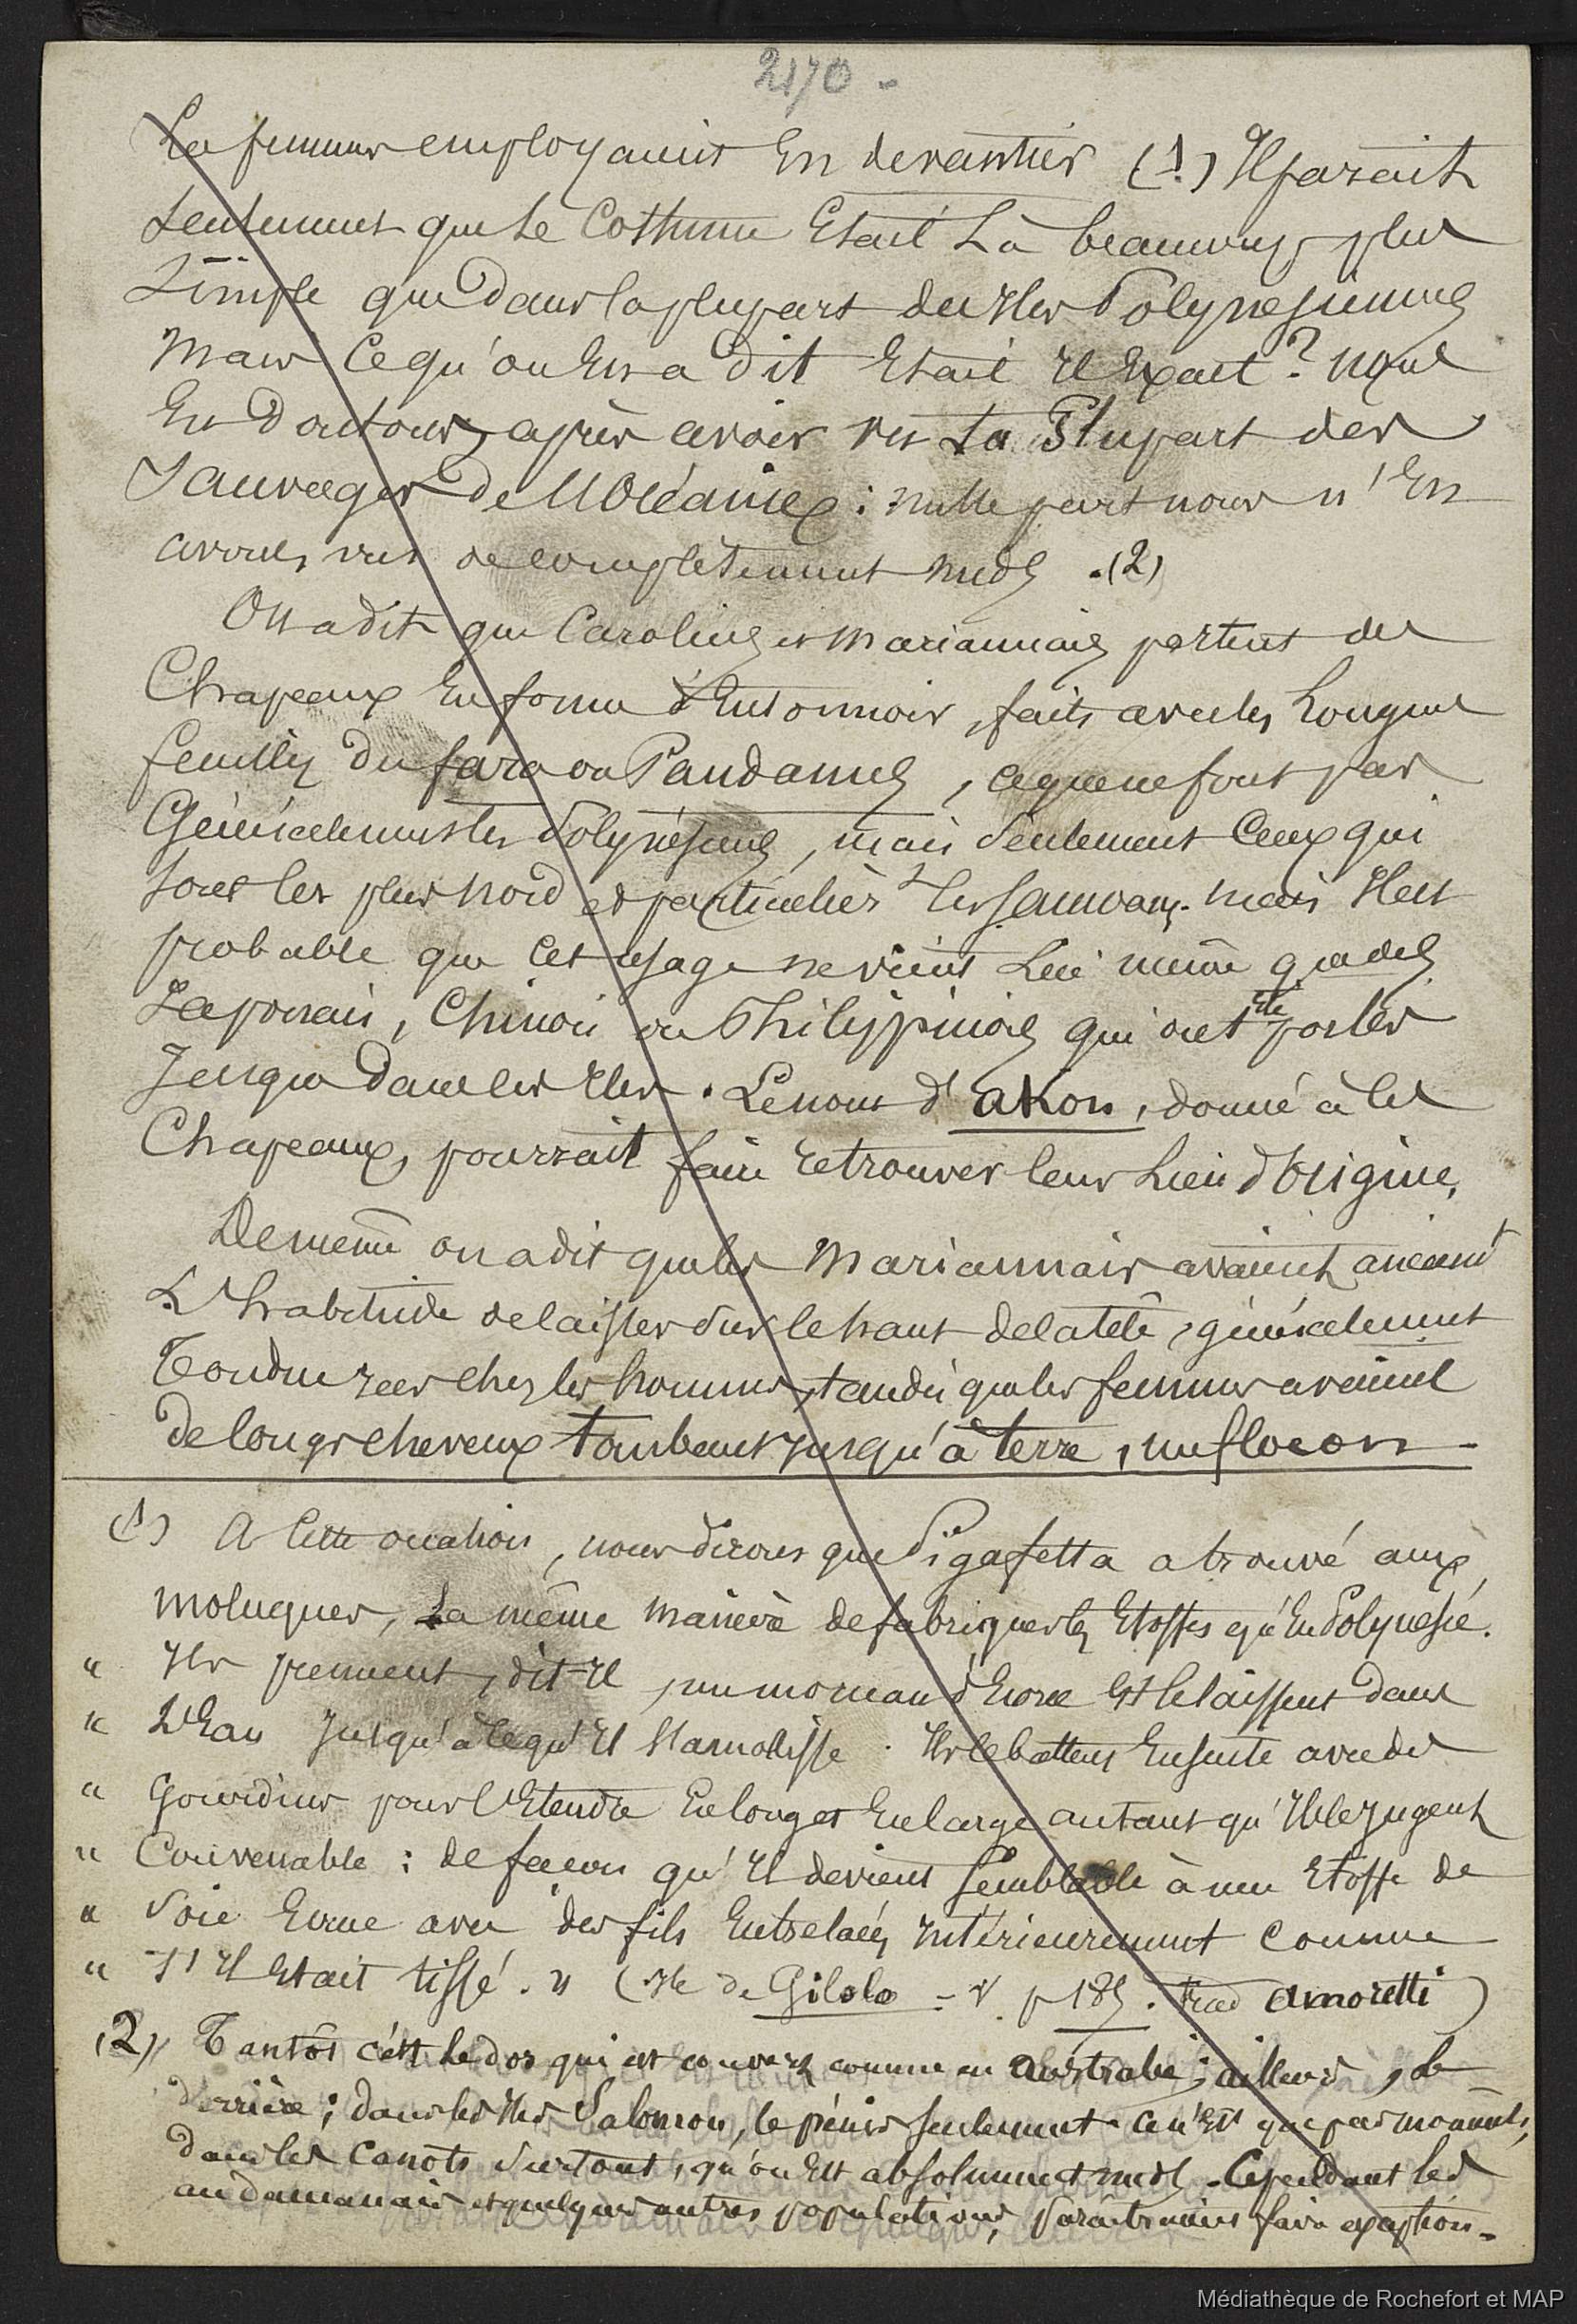 2170 -
Les femmes employaient En devantier (1.) Il parait
seulement que le Costume Etait Là beaucoup plus
simple que dans la plupart des Iles Polynesiennes
mais Ce qu'on En a dit Etait Il Exact? nous
En doutons, après avoir vu La Plupart des
Sauvages De l'Océanie : nulle part nous n'En
avons vus de complètement nuds. (2)
On a dit que Carolins et Mariannais portent des
Chapeaux En forme d'Entonnoir, faits avec les Longues
feuilles du fara ou Pandanus, ce que ne font pas
Généralement les Polynésiens, mais seulement Ceux qui
sont les plus nord et particulièrt les Samoans. mais Il est
probable que Cet usage ne vient Lui même que des
Japonais, Chinois ou Philippinois qui ont été portés
Jusque Dans les Iles. Le nom d'akon, donné à Ces
Chapeaux, pourrait faire retrouver leur Lieu d'Origine.
De même on a dit que les Mariannais avaient anciennt
L'habitude de laisser sur le haut de la tête, généralement
Tondue rase chez les hommes, tandis que les femmes avaient
de longs cheveux tombant jusqu'à terre, un flocon -
(1) A Cette occasion, nous dirons que Pigafetta a trouvé aux
moluques, La même manière de fabriquer les Etoffes qu'En Polynesie.
" Ils prennent, dit-Il, un morceau d'Ecorce Et le laissent dans
" L'Eau Jusqu'à Ce qu'Il s'amollisse. Ils le battent Ensuite avec des
" Gourdins pour l'Etendre En long et En large autant qu'Ils le jugent
" Convenable : de façon qu'Il devient semblable à une Etoffe de
" Soie Ecrue avec des fils Entrelacés Intérieurement comme
" S'Il Etait tissé. " (Ile de Gilolo - v. p 185. trad amoretti)
(2) Tantôt c'est le dos qui est couvert comme en australie ; ailleurs, le
derrière ; dans les Iles Salomon, le pénis seulement. ce n'Est que par moments,
dans les Canots surtout, qu'on Est absolument nuds. Cependant les
andamanais et quelques autres populations, paraitraient faire exception.
Médiathèque de Rochefort et MAP